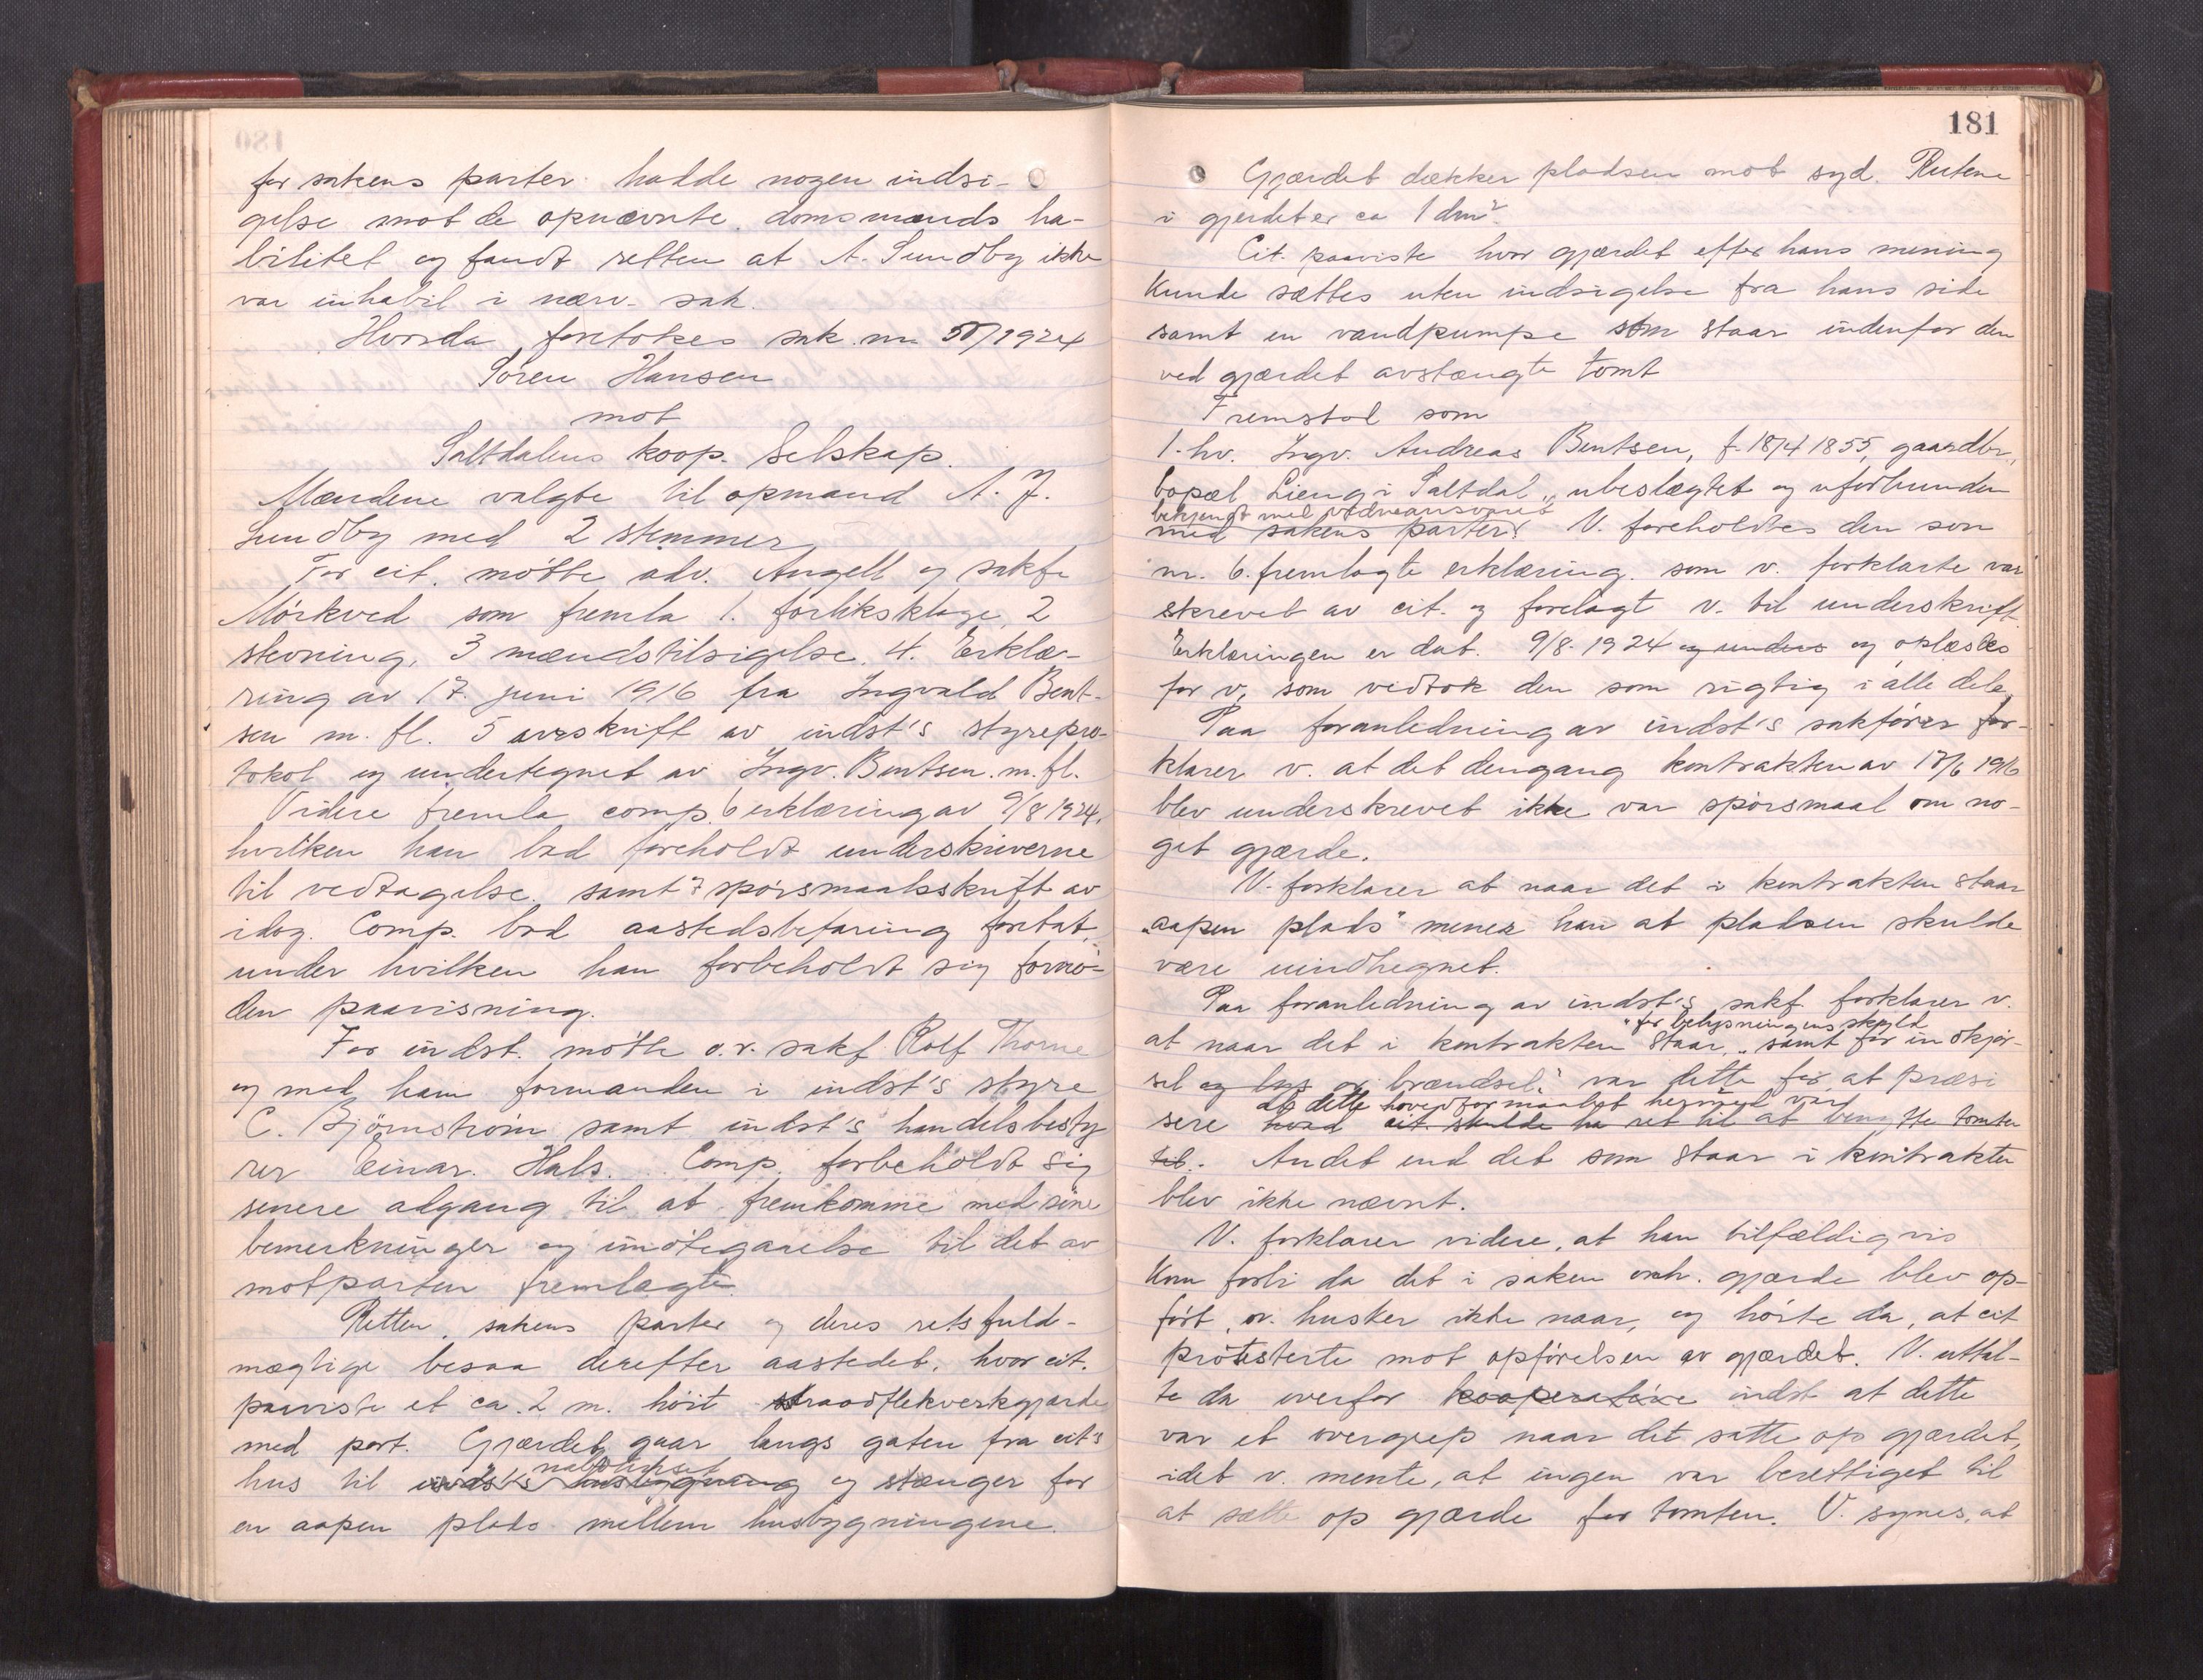 for sakens parter hadde nogen indsi-
gelse mot de opnævnte domsmænds ha-
bilitet og fandt retten at A. Sundby ikke
var inhabil i nærv. sak.
Hvorda foretokes sak nr. 55/1924
Sören Hansen
mot
Saltdalens koop. Selskap.
Mændene valgte til opmand A. J.
Sundby med 2 stemmer
For cit. mötte adv. Angell og sakf.
Mörkved som fremla 1. forliksklage, 2
stevning, 3 mændstilsigelse. 4. Erklæ-
ring av 17. juni 1916 fra Ingvald Bent-
sen m. fl. 5 avskrift av indst's styrepro-
tokol og undertegnet av Ingv. Bentsen m. fl.
Videre fremla comp. 6 erklæring av 9/8 1924,
hvilken han bad foreholdt underskriverne
til vedtagelse. samt 7 spörsmaalsskrift av
idag. Comp. bad aastedsbefaring foretat,
under hvilken han forbeholdt sig fornö-
den paavisning.
For indst. mötte o.r. sakf. Rolf Thorne
og med ham formanden i indst's styre
C. Björnström samt indst's handelsbesty
rer Einar Hals. Comp. forbeholdt sig
senere adgang til at fremkomme med sine
bemerkninger og imötegaaelse til det av
motparten fremlagte.
Retten, sakens parter og deres retsfuld-
mægtige besaa derefter aastedet, hvor cit.
paaviste et ca. 2 m. höit traadflekverkgjærde
med port. Gjærdet gaar langs gaten fra cit's
hus til indst's og stænger for
en aapen plads mellem husbygningene.
181
Gjærdet dækker pladsen mot syd. Rutene
i gjerdet er ca 1 dm²
Cit. paaviste hvor gjærdet efter hans mening
kunde sættes uten indsigelse fra hans side
samt en vandpumpe som staar indenfor den
ved gjærdet avstængte tomt
Fremstod som
1. hv. Ingv. Andreas Bentsen, f. 18/4 1855, gaardbr,
bopæl Lieng i Saltdal, ubeslægtet og uforbunden
bekjendt med vidneansvaret
med sakens parter. V. foreholdtes den som
nr. 6. fremlagte erklæring. som v. forklarte var
skrevet av cit. og forelagt v. til underskrift
Erklæringen er dat. 9/8. 1924 og unders og oplæstes
for v, som vedtok den som rigtig i alle dele.
Paa foranledning av indst's sakförer for-
klarer v. at det dengang kontrakten av 17/6 1916
blev underskrevet ikke var spörsmaal om no-
get gjærde.
V. forklarer at naar det i kontrakten staar
"aapen plads" mener han at pladsen skulde
være uindhegnet.
Paa foranledning av indst's sakf. forklarer v.
"for belysningens skyld
at naar det i kontrakten staar, samt for indkjör-
sel og lys av brændsel" var dette for at præsi
at dette hovedformaalet hermed var
sere hvad cit. skulde ha ret til at benytte tomten
til. Andet end det som staar i kontrakten
blev ikke nævnt.
V. forklarer videre, at han tilfældigvis
kom forbi da det i saken omh. gjærde blev op-
fört, v. husker ikke naar, og hörte da, at cit
protesterte mot opförelsen av gjærdet. V. uttal-
te da overfor kooperative indst at dette
var et overgrep naar det satte op gjærdet,
idet v. mente, at ingen var berettiget til
at sætte op gjærde for tomten. V. synes, at